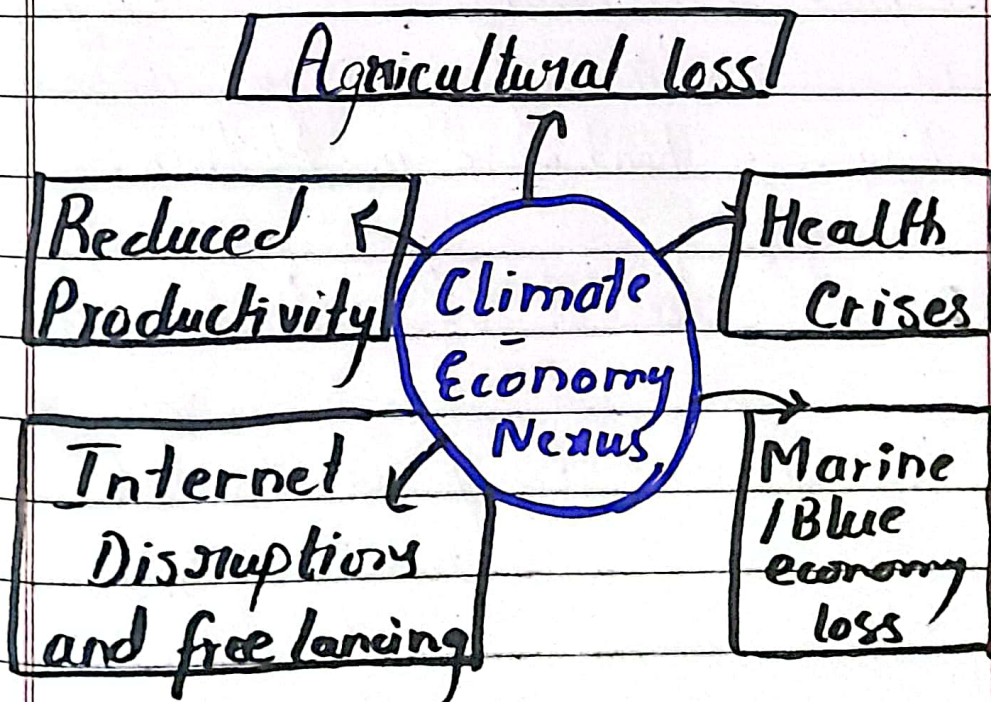 Agricultural loss
Reduced
Productivity
Climate
Economy
Nexus
Health
Crises
Internet
Disruptions
and freelancing
Marine
/Blue
economy
loss